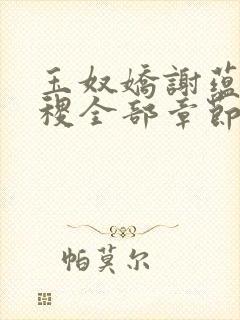 玉奴嬌謝蘊
稷全部章節
帕莫尔